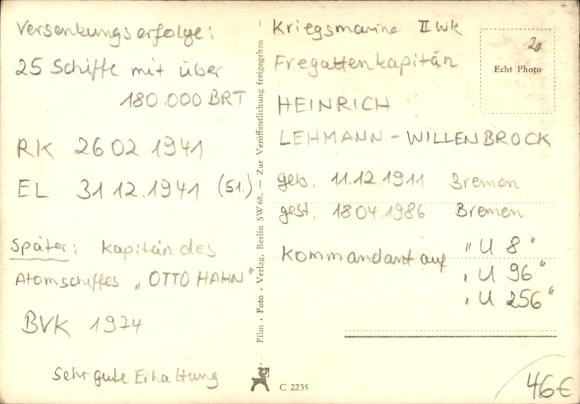 Versenkungserfolge:
25 Schiffe mit über
180.000 BRT
RK 26 02 1941
EL 31 12.1941 (51.)
Später: Kapitän des
Atomschiffes „OTTO HAHN“
BVK 1974
Sehr gute Erhaltung
Film • Foto • Verlag, Berlin SW 68. — Zur Veröffentlichung freigegeben —
C 2235
Kriegsmarine II WK
Fregattenkapitän
HEINRICH
LEHMANN-WILLENBROCK
geb. 11.12.1911 Bremen
gest. 18.04.1986 Bremen
Kommandant auf „U 8“
„U 96“
„U 256“
20
Echt Photo
46€